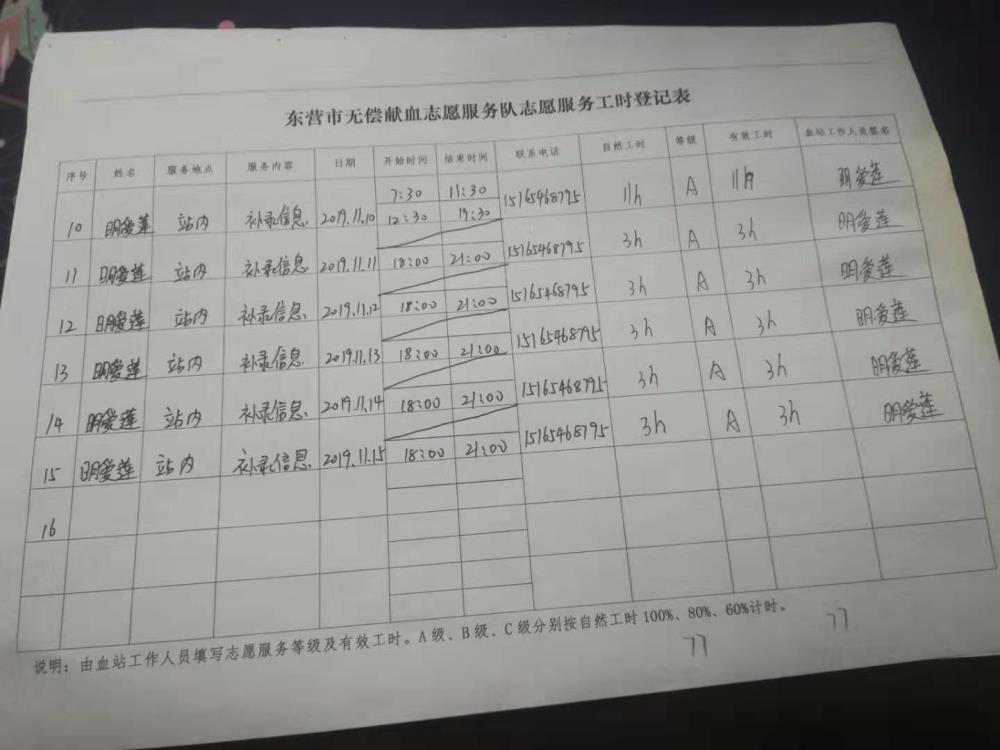 东营市无偿献血志愿服务队志愿服务工时登记表
序号 姓名 服务地点 服务内容 日期 开始时间 结束时间 联系电话 自然工时 等级 有效工时 血站工作人员签名
7:30 11:30
10 明爱莲 站内 补录信息 2019.11.10 12:30 19:30 15165468795 11h A 11h 明爱莲
11 明爱莲 站内 补录信息 2019.11.11 18:00 21:00 15165468795 3h A 3h 明爱莲
12 明爱莲 站内 补录信息 2019.11.12 18:00 21:00 15165468795 3h A 3h 明爱莲
13 明爱莲 站内 补录信息 2019.11.13 18:00 21:00 15165468795 3h A 3h 明爱莲
14 明爱莲 站内 补录信息 2019.11.14 18:00 21:00 15165468795 3h A 3h 明爱莲
15 明爱莲 站内 补录信息 2019.11.15 18:00 21:00 15165468795 3h A 3h 明爱莲
16
说明：由血站工作人员填写志愿服务等级及有效工时。A级、B级、C级分别按自然工时100%、80%、60%计时。
77 77